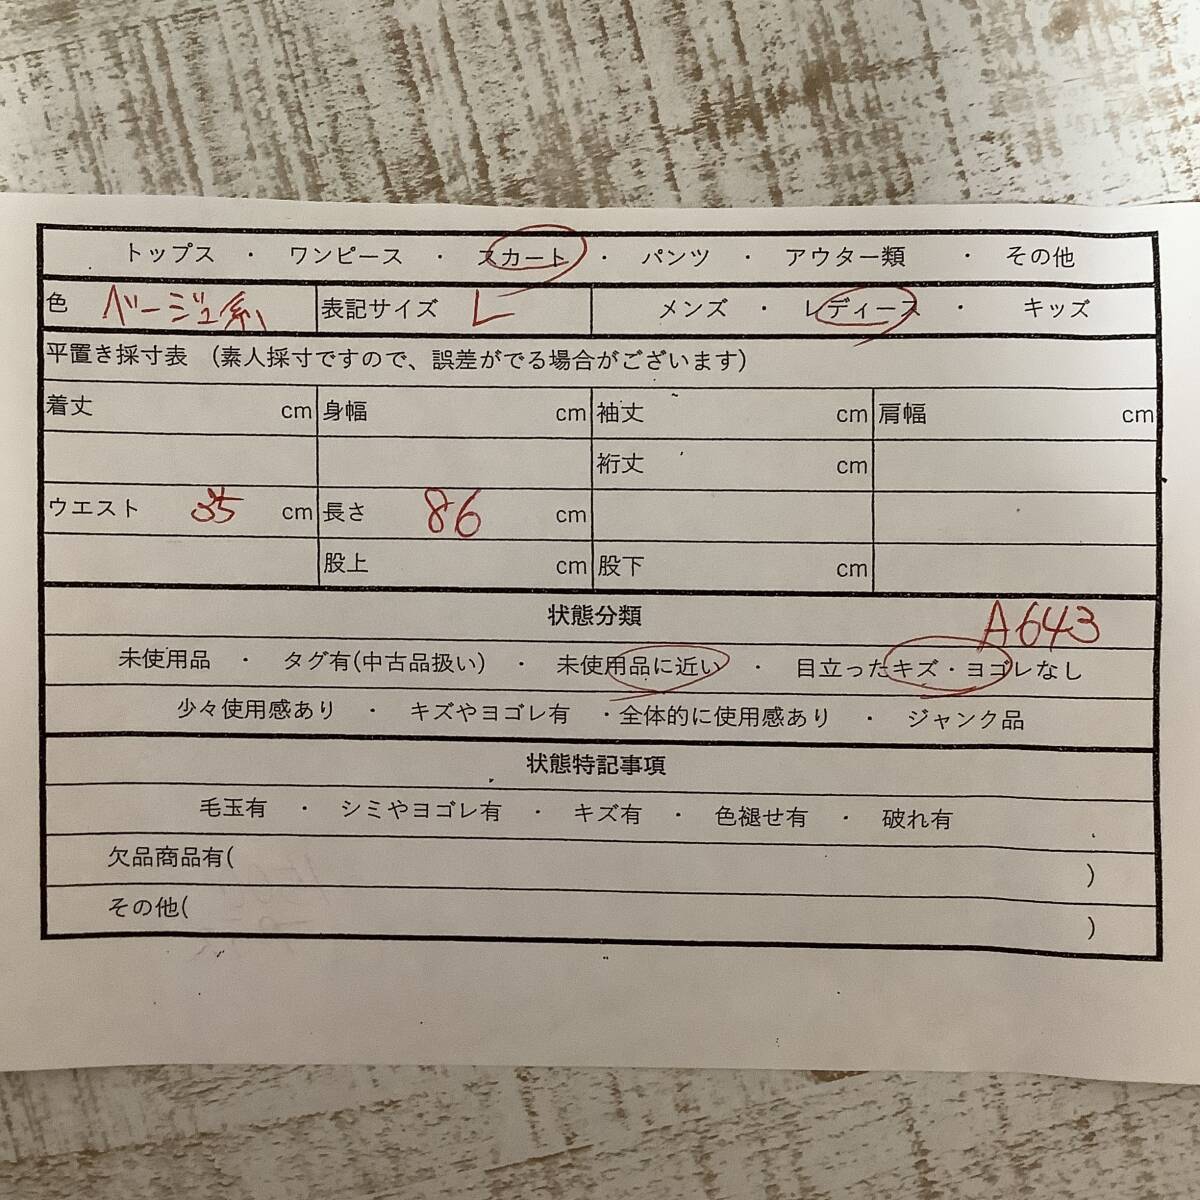 トップス ・ ワンピース ・ スカート ・ パンツ ・ アウター類 ・ その他
色 ベージュ系 表記サイズ L メンズ ・ レディース ・ キッズ
平置き採寸表 (素人採寸ですので、誤差がでる場合がございます)
着丈 cm 身幅 cm 袖丈 cm 肩幅 cm
裄丈 cm
ウエスト 35 cm 長さ 86 cm
股上 cm 股下 cm
状態分類 A643
未使用品 ・ タグ有(中古品扱い) ・ 未使用品に近い ・ 目立ったキズ・ヨゴレなし
少々使用感あり ・ キズやヨゴレ有 ・全体的に使用感あり ・ ジャンク品
状態特記事項
毛玉有 ・ シミやヨゴレ有 ・ キズ有 ・ 色褪せ有 ・ 破れ有
欠品商品有( )
その他( )